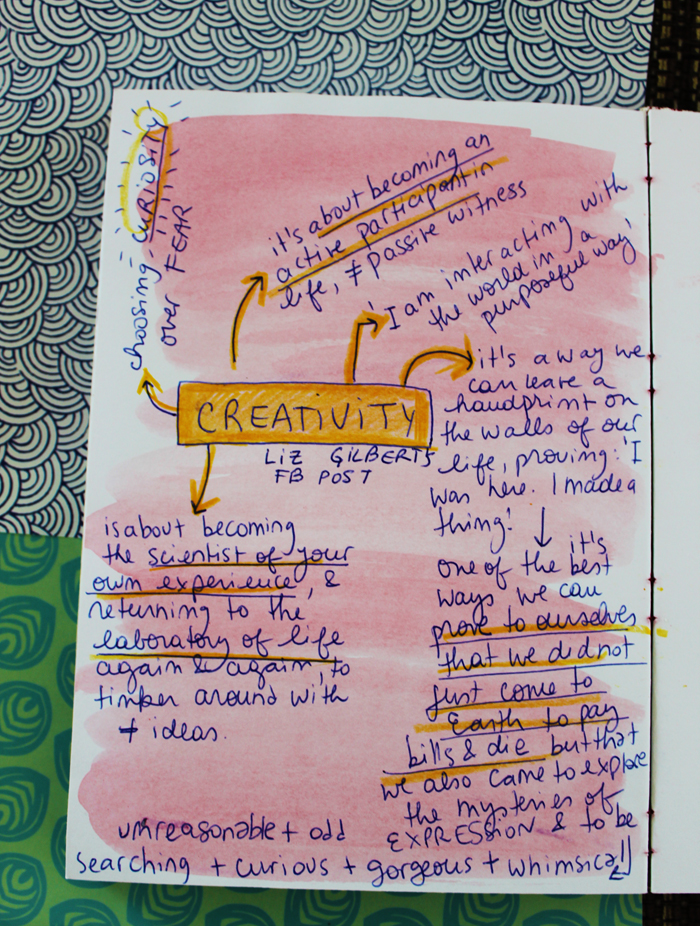 choosing CURIOSITY
over FEAR
it's about becoming an
active participant in
life, ≠ passive witness
'I am interacting with
the world in a
purposeful way'
it's a way we
can leave a
handprint on
the walls of our
life, proving: 'I
was here. I made a
thing!'
CREATIVITY
LIZ GILBERTS
FB POST
is about becoming
the scientist of your
own experience, &
returning to the
laboratory of life
again & again, to
timber around with
≠ ideas.
it's
one of the best
ways we can
prove to ourselves
that we did not
just come to
Earth to pay
bills & die but that
we also came to explore
the mysteries of
EXPRESSION & to be
unreasonable + odd
searching + curious + gorgeous + whimsical